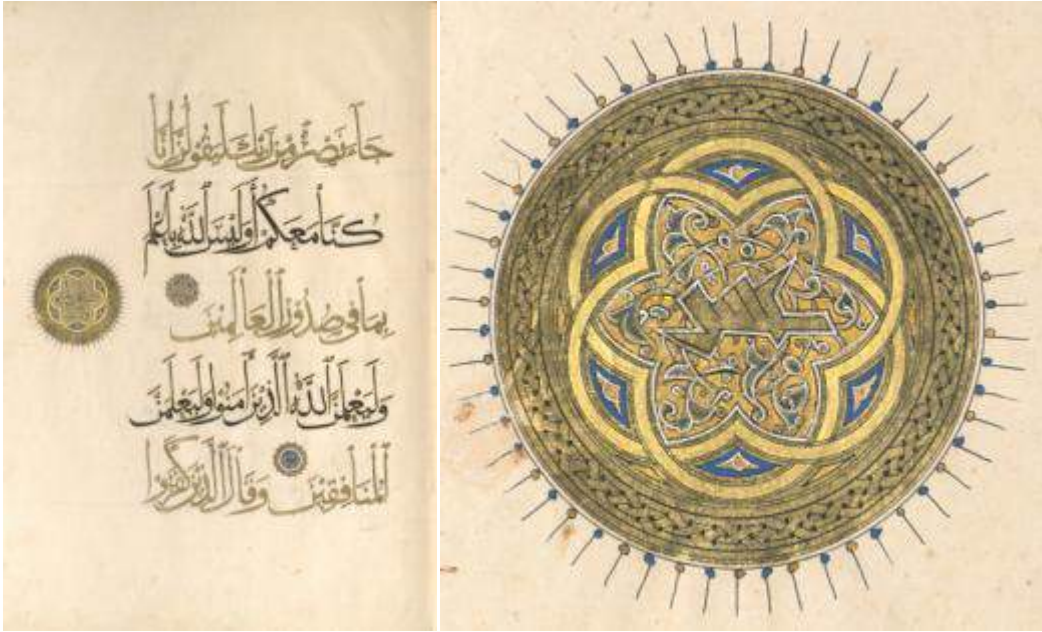 جَاءَ نَصْرٌ مِّن رَّبِّكَ لَيَقُولُنَّ إِنَّا
كُنَّا مَعَكُمْ أَوَلَيْسَ اللَّهُ بِأَعْلَمَ
بِمَا فِي صُدُورِ الْعَالَمِينَ
وَلَيَعْلَمَنَّ اللَّهُ الَّذِينَ آمَنُوا وَلَيَعْلَمَنَّ
الْمُنَافِقِينَ وَقَالَ الَّذِينَ كَفَرُوا